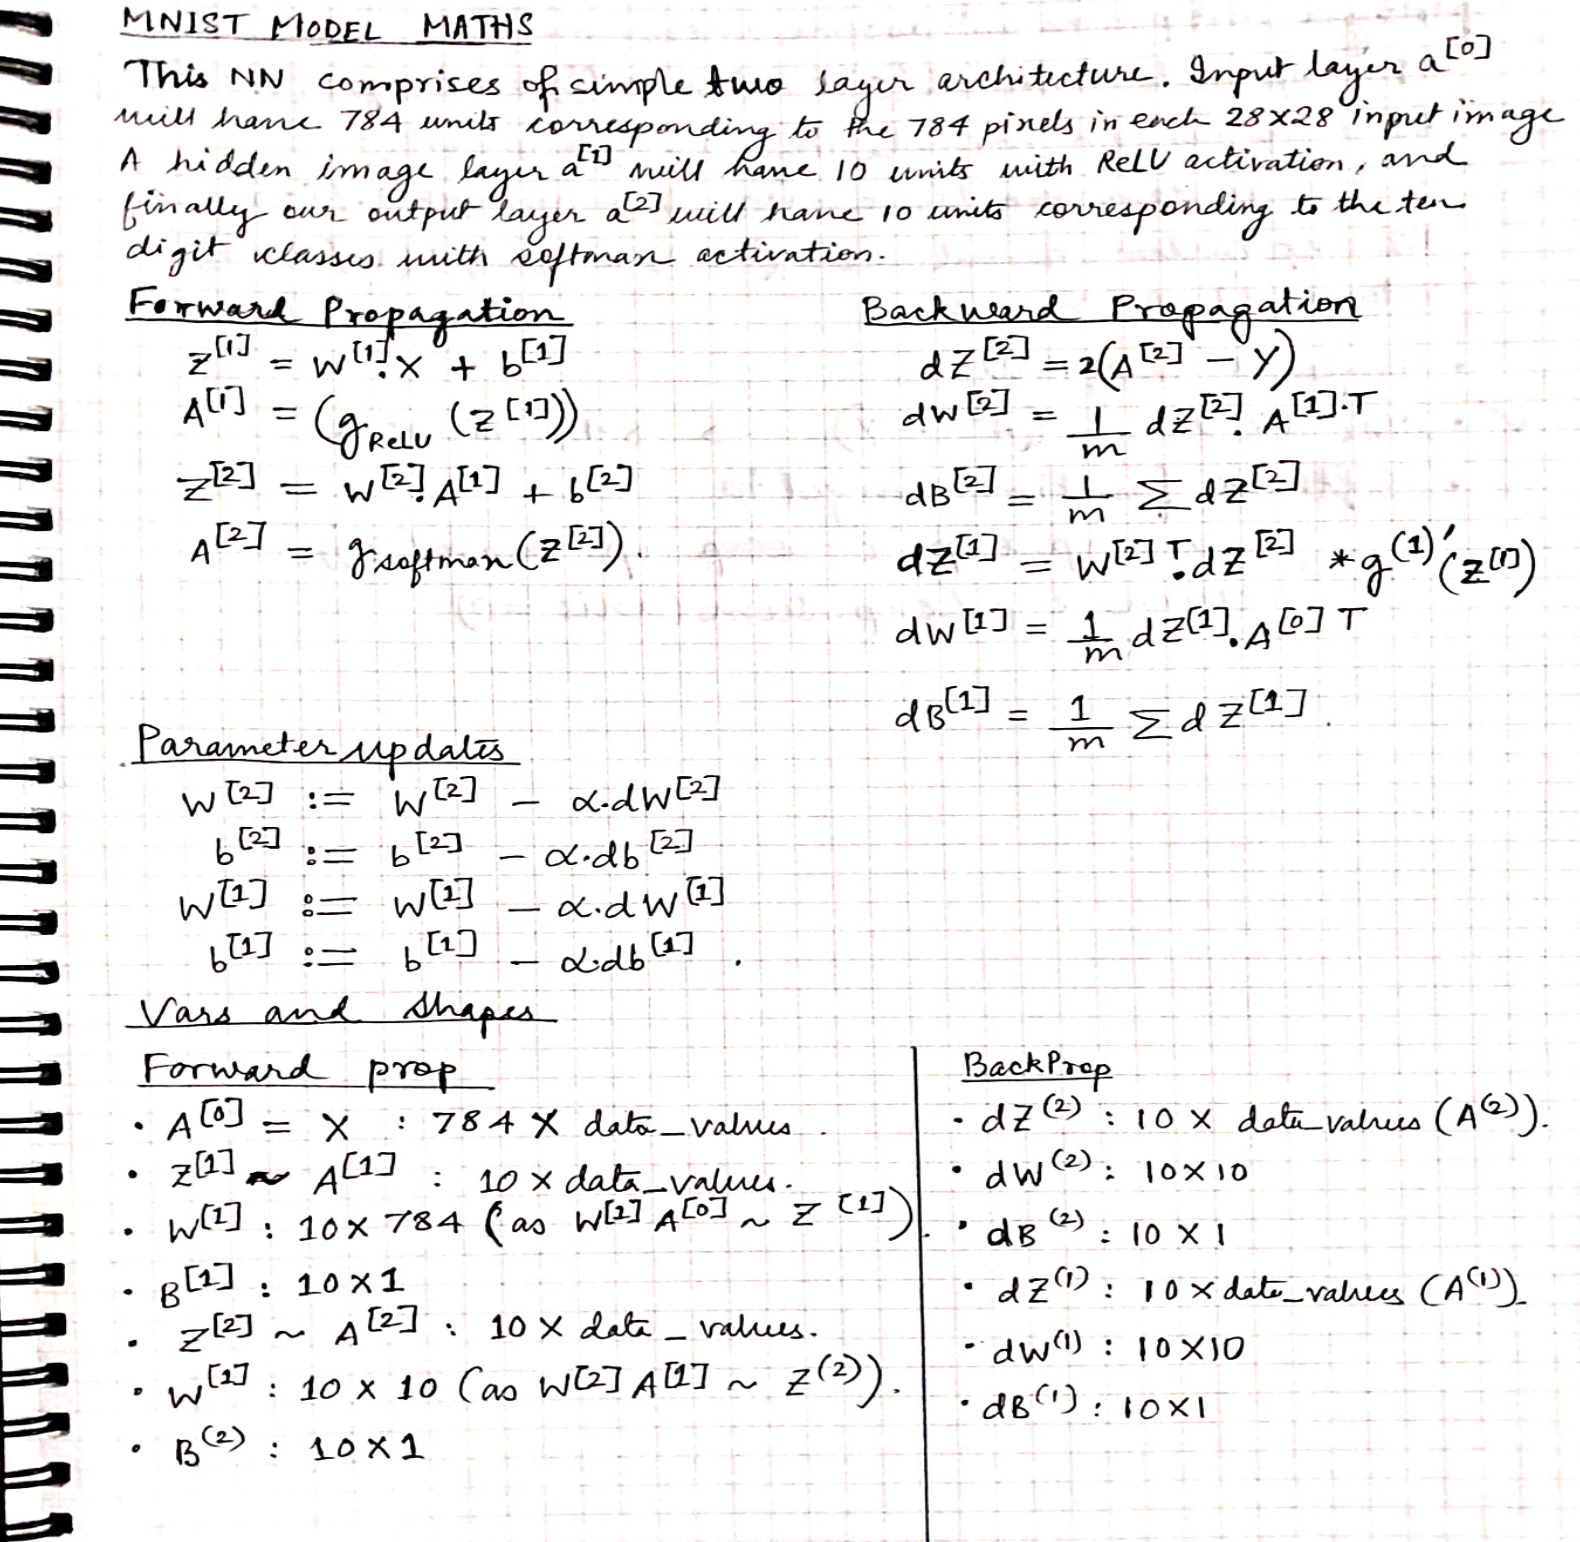 MNIST MODEL MATHS
This NN comprises of simple two layer architecture. Input layer a[0]
will have 784 units corresponding to the 784 pixels in each 28x28 input image
A hidden image layer a[1] will have 10 units with ReLU activation, and
finally our output layer a[2] will have 10 units corresponding to the ten
digit classes with softmax activation.
Forward Propagation
z[1] = W[1].X + b[1]
A[1] = (g ReLU (z[1]))
Z[2] = W[2].A[1] + b[2]
A[2] = g softmax (Z[2]).
Backward Propagation
dZ[2] = 2(A[2] - Y)
dW[2] = 1/m dZ[2]. A[1].T
dB[2] = 1/m Σ dZ[2]
dZ[1] = W[2]T.dZ[2] * g(1)'(z[1])
dW[1] = 1/m dZ[1].A[0]T
dB[1] = 1/m Σ dZ[1].
Parameter updates
W[2] := W[2] - α.dW[2]
b[2] := b[2] - α.db[2]
W[1] := W[1] - α.dW[1]
b[1] := b[1] - α.db[1].
Vars and Shapes
Forward prop
• A[0] = X : 784 X data_values.
• Z[1] ~ A[1] : 10 x data_values.
• W[1] : 10 x 784 (as W[1] A[0] ~ Z[1]).
• B[1] : 10 x 1
• Z[2] ~ A[2] : 10 X data_values.
• W[1] : 10 x 10 (as W[2] A[1] ~ Z(2)).
• B(2) : 10 x 1
BackProp
• dZ(2) : 10 x data_values (A(2)).
• dW(2) : 10x10
• dB(2) : 10 x 1
• dZ(1) : 10 x data_values (A(1))
• dW(1) : 10x10
• dB(1) : 10x1